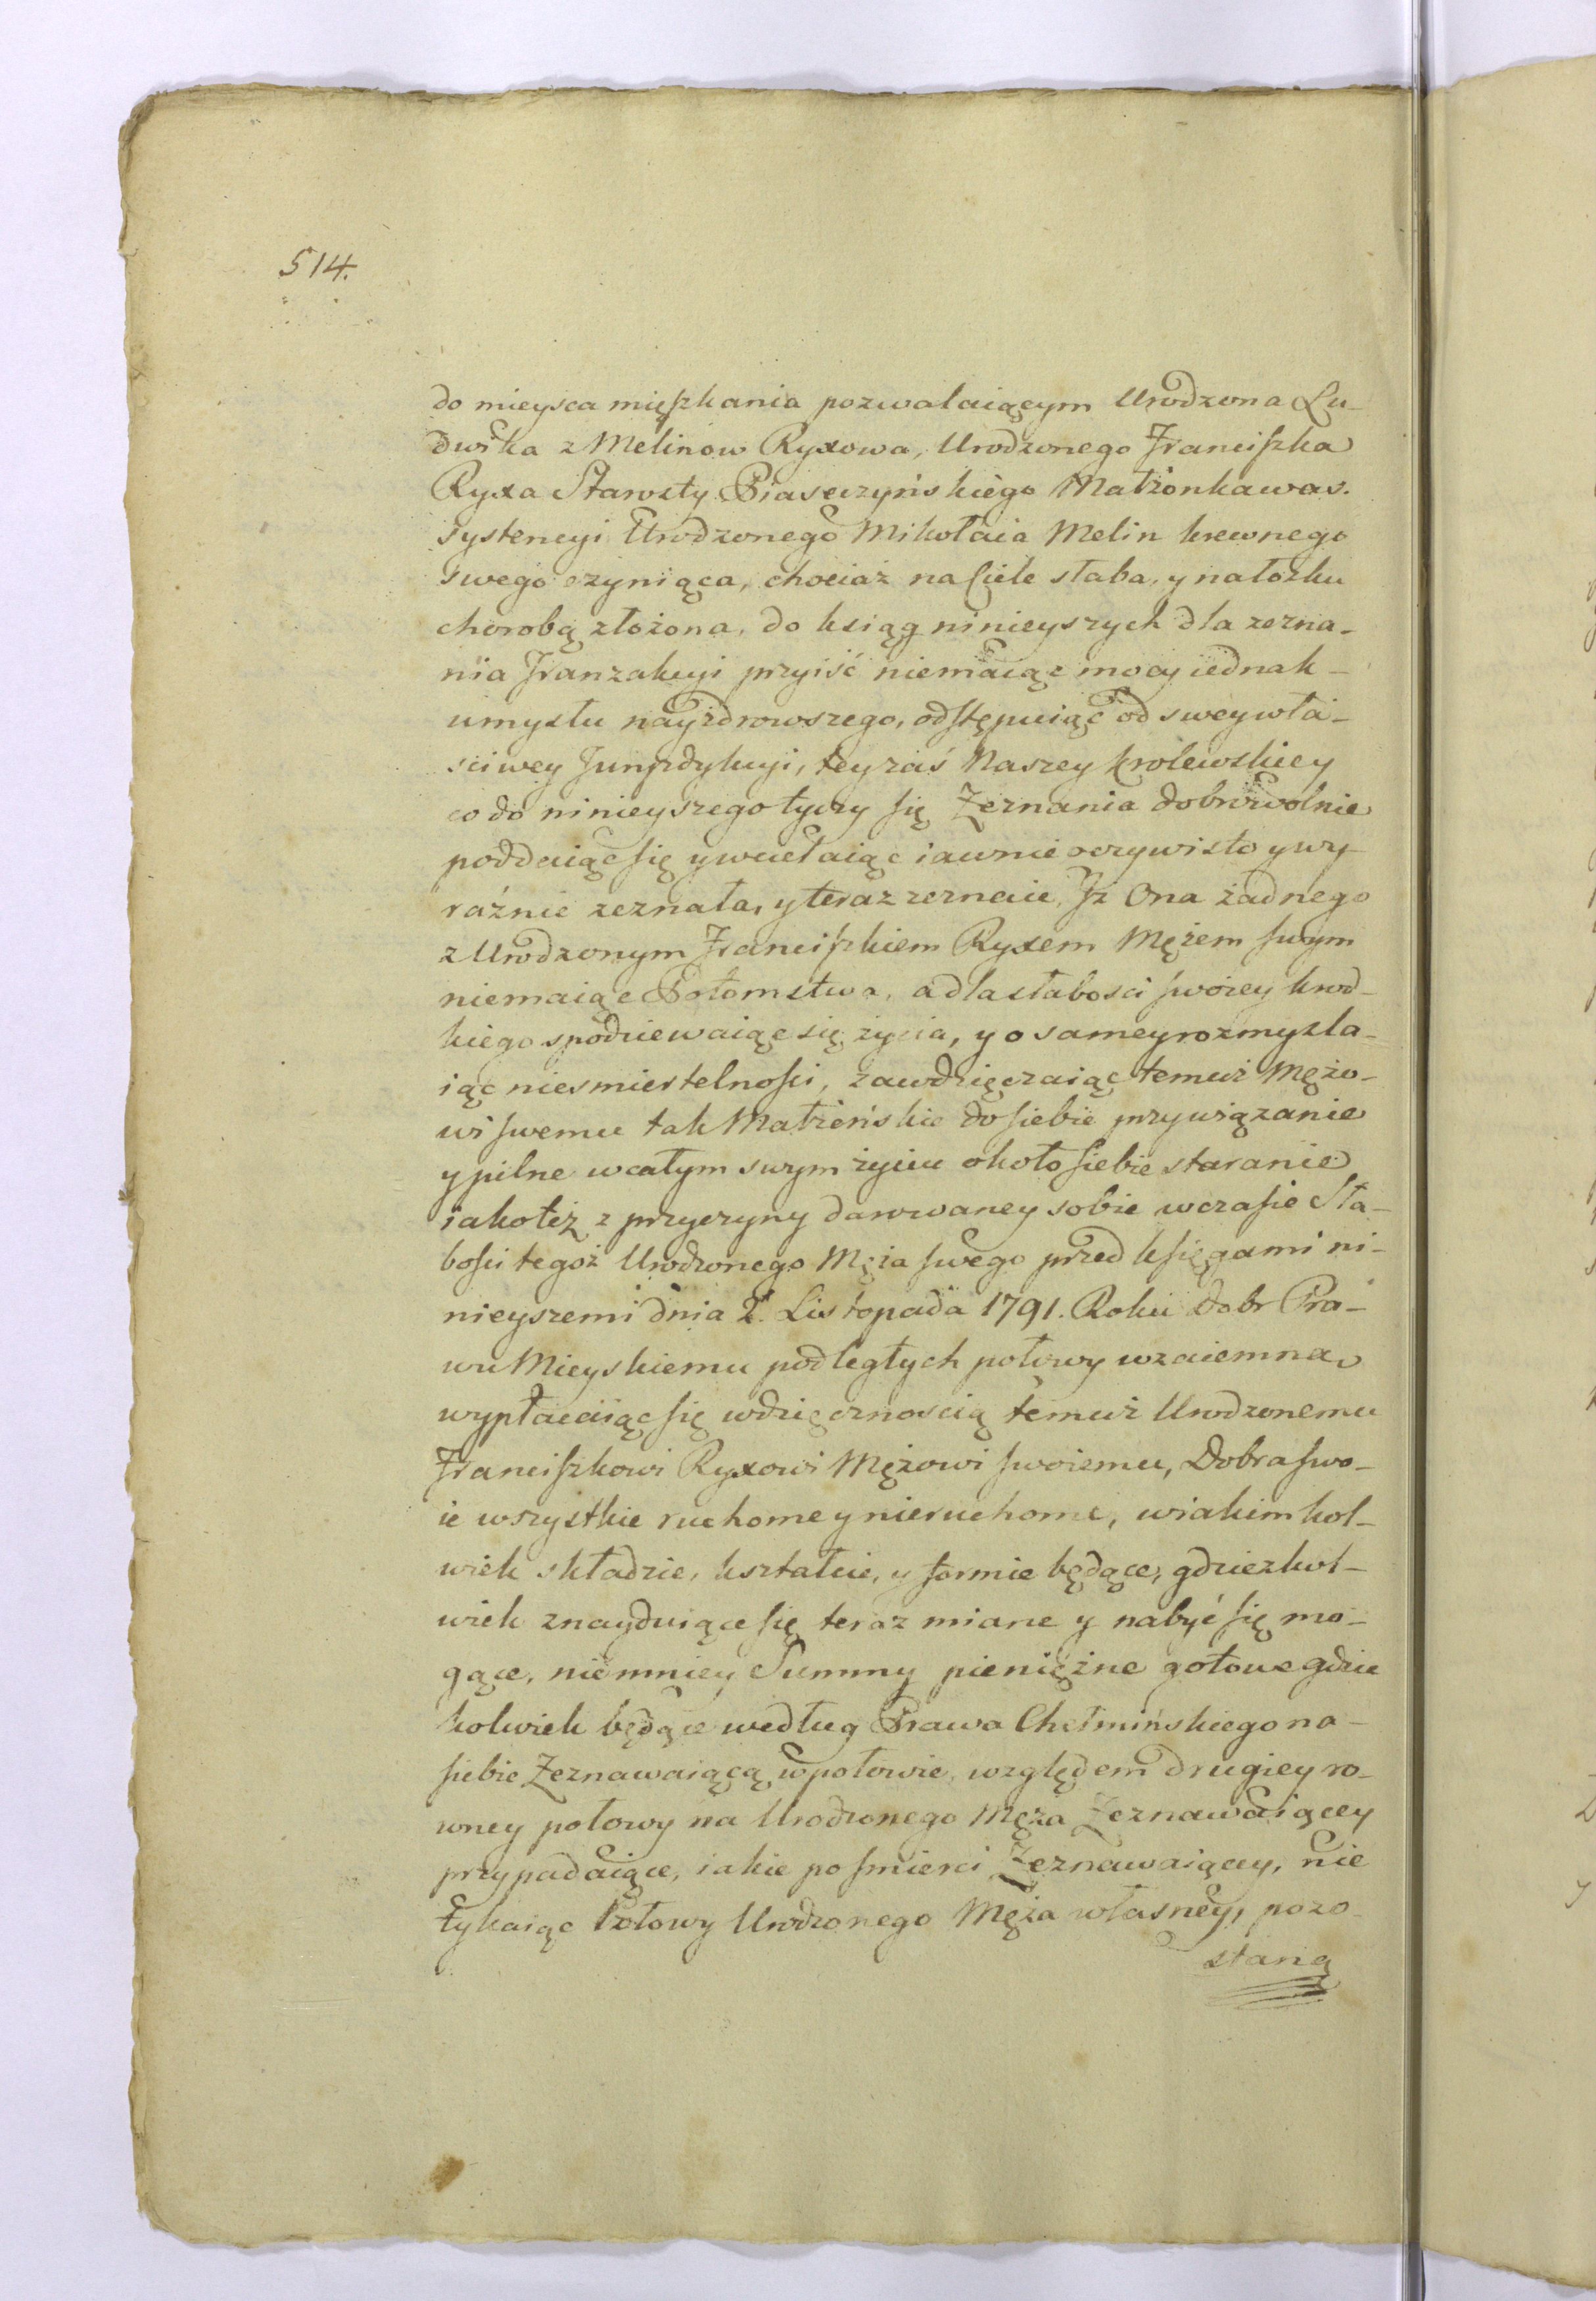 514.
do mieysca mięszkania pozwalaiącym Urodzona Lu-
dwika z Melinow Ryxowa, Urodzonego Franciszka
Ryxa Starosty Piaseczyńskiego Małżonka w as.
systencyi Urodzonego Mikołaia Melin krewnego
swego czyniąca, chociaż na Ciele słaba, y na łożku
chorobą złożona, do ksiąg ninieyszych dla zezna-
nia Tranzakcyi przyiść niemaiąc mocy iednak-
umysłu nayzdrowszego, odstępuiąc od swey wła-
sciwey Juryzdykcyi, tey zaś Naszey Krolewskiey
co do ninieyszego tyczy się Zeznania dobrowolnie
poddaiąc się y wcielaiąc iawnie oczywisto y wy-
raźnie zeznała, y teraz zeznaie, Jż Ona żadnego
z Urodzonym Franciszkiem Ryxem Mężem swym
niemaiąc Potomstwa, a dla słabosci swoiey krod-
kiego spodziewaiąc się życia, y o samey rozmysla-
iąc niesmiertelności, zawdzięczaiąc temuż Mężo-
wi swemu tak Małżeńskie do siebie przywiązanie
y pilne w całym swym życiu około siebie staranie
iakoteż z przyczyny darowaney sobie w czasie Sła-
bości tegoż Urodzonego Męża swego przed księgami ni-
nieyszemi dnia 2. Listopada 1791. Roku Dobr Pra-
wu Mieyskiemu podległych połowy wzaiemną
wypłacaiąc się wdzięcznoscią temuż Urodzonemu
Franciszkowi Ryxowi Mężowi swoiemu, Dobra swo-
ie wszystkie ruchome y nieruchome, w iakim kol-
wiek składzie, kształcie, y formie będące, gdziezkol-
wiek znayduiące się teraz miane y nabyć się mo-
gące, niemniey Summy pieniężne gotowe gdzie
kolwiek będące według Prawa Chełmińskiego na-
siebie Zeznawaiącą w połowie, względem drugiey ro-
wney połowy na Urodzonego Męża Zeznawaiącey
przypadaiące, iakie po smierci Zeznawaiącey, nie
tykaiąc Połowy Urodzonego Męża własney, pozo-
staną